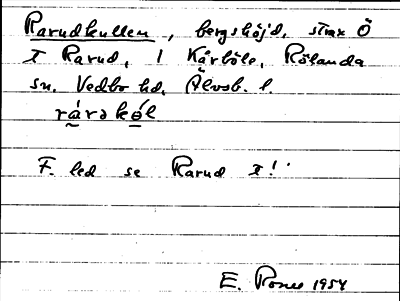 Rarudkullen, bergshöjd, strax Ö
I Rarud, 1 Kårböle, Rölanda
sn. Vedbo hd, Älvsb. l.
rárəkól
F. led se Rarud I!
E. 1954